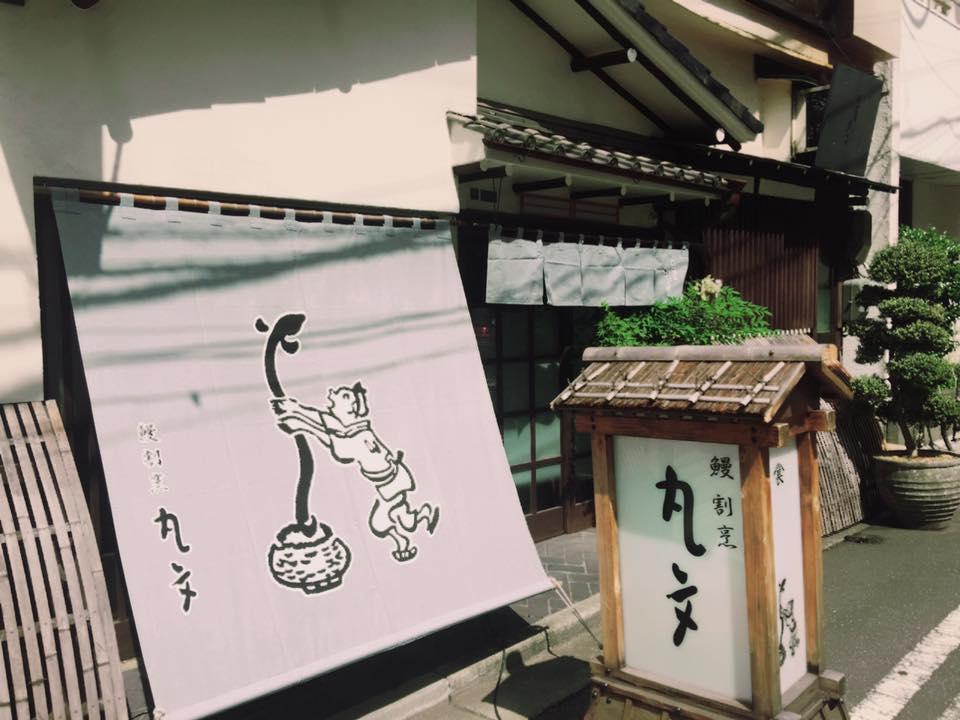 鰻割烹
丸文
鰻割烹
丸文